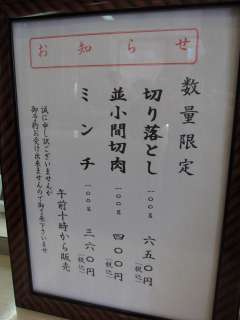 お知らせ
数量限定
切り落とし 一〇〇g 六五〇円（税込）
並小間切肉 一〇〇g 四〇〇円（税込）
ミンチ 一〇〇g 三六〇円（税込）
午前十時から販売
誠に申し訳ございませんが
御予約お受け出来ませんので御了承下さいませ